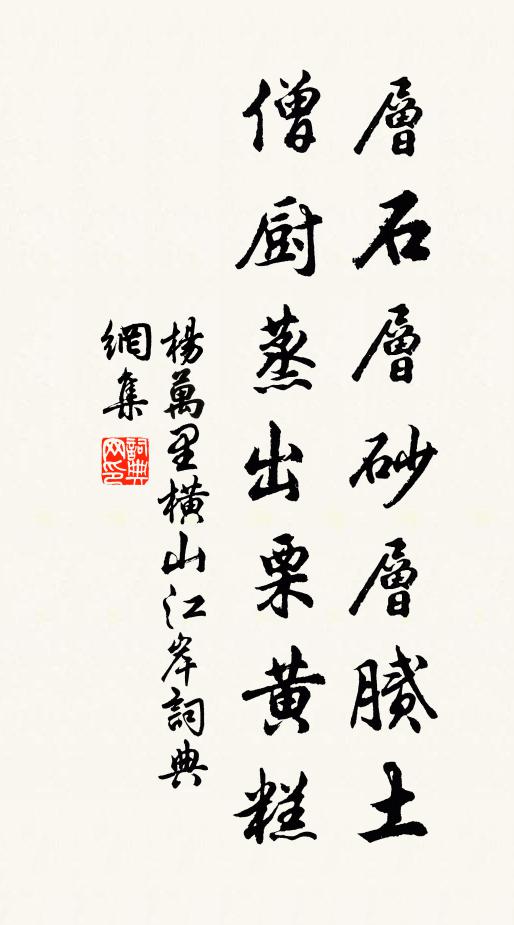 層石層砂層膩土
僧厨蒸出栗黄糕
楊萬里橫山江岸詞典
網集
詞典
网印